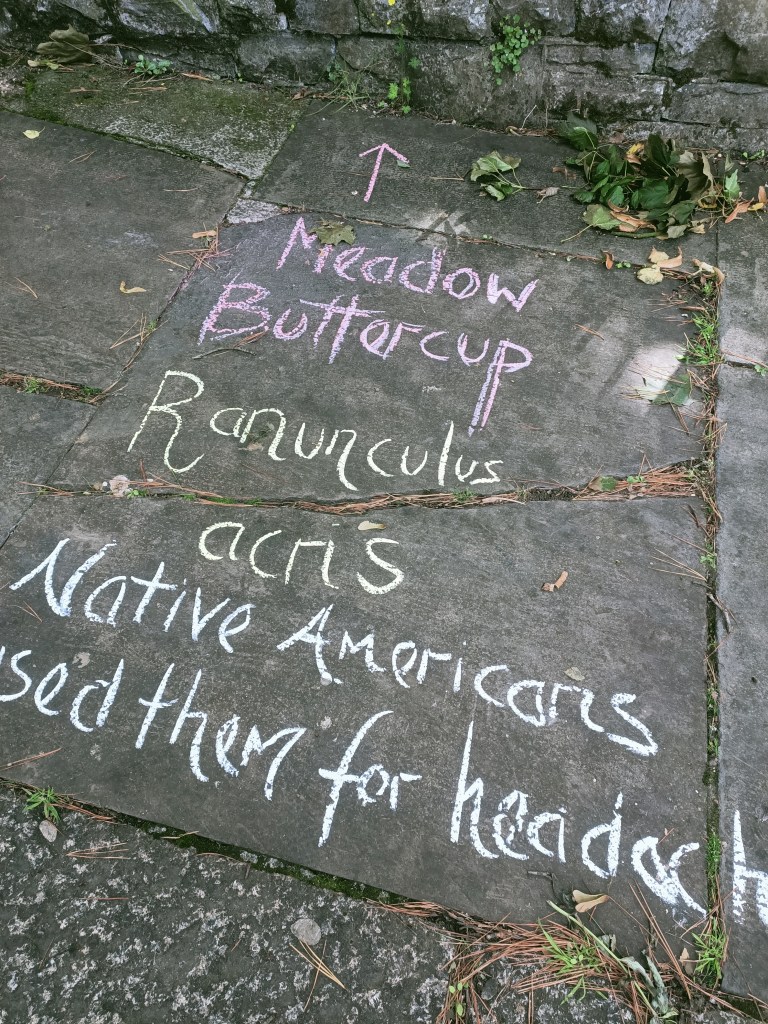 Meadow
Buttercup
Ranunculus
acris
Native Americans
used them for headach